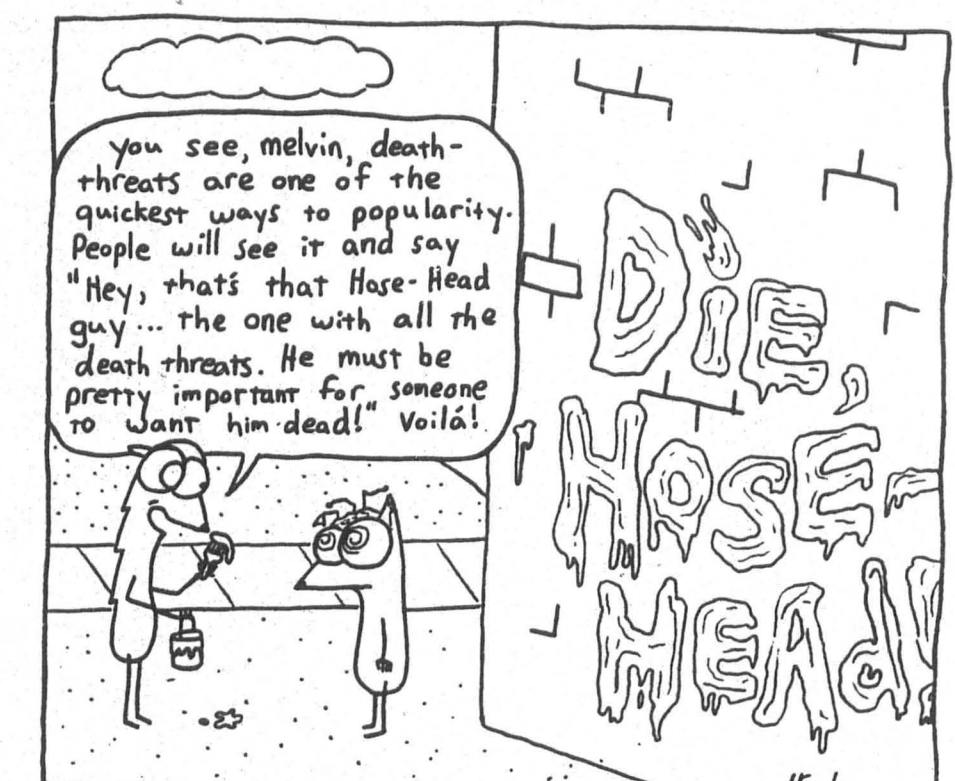 you see, melvin, death-
threats are one of the
quickest ways to popularity.
People will see it and say
"Hey, that's that Hose-Head
guy... the one with all the
death threats. He must be
pretty important for someone
to want him dead!" Voilá!
DiE,
HOSE-
HEAd!